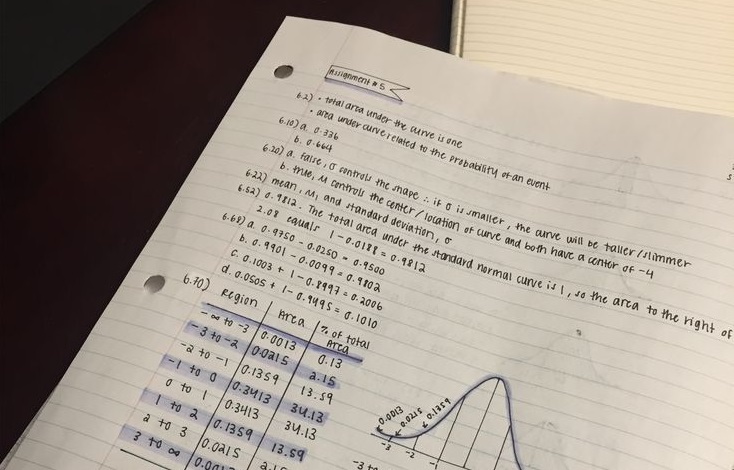 Assignment #5
6.2) • total area under the curve is one
• area under curve related to the probability of an event
6.10) a. 0.336
b. 0.664
6.20) a. false, σ controls the shape ∴ if σ is smaller, the curve will be taller/slimmer
b. true, μ controls the center/location of curve and both have a center of -4
6.22) mean, μ, and standard deviation, σ
6.52) 0.9812. The total area under the standard normal curve is 1, so the area to the right of
2.08 equals 1-0.0188 = 0.9812
6.68) a. 0.9750 - 0.0250 = 0.9500
b. 0.9901 - 0.0099 = 0.9802
c. 0.1003 + 1-0.8997 = 0.2006
d. 0.0505 + 1-0.9495 = 0.1010
6.70)
Region Area % of total Area
-∞ to -3 0.0013 0.13
-3 to -2 0.0215 2.15
-2 to -1 0.1359 13.59
-1 to 0 0.3413 34.13
0 to 1 0.3413 34.13
1 to 2 0.1359 13.59
2 to 3 0.0215
3 to ∞
0.0013
0.0215
0.1359
-3 -2 -1